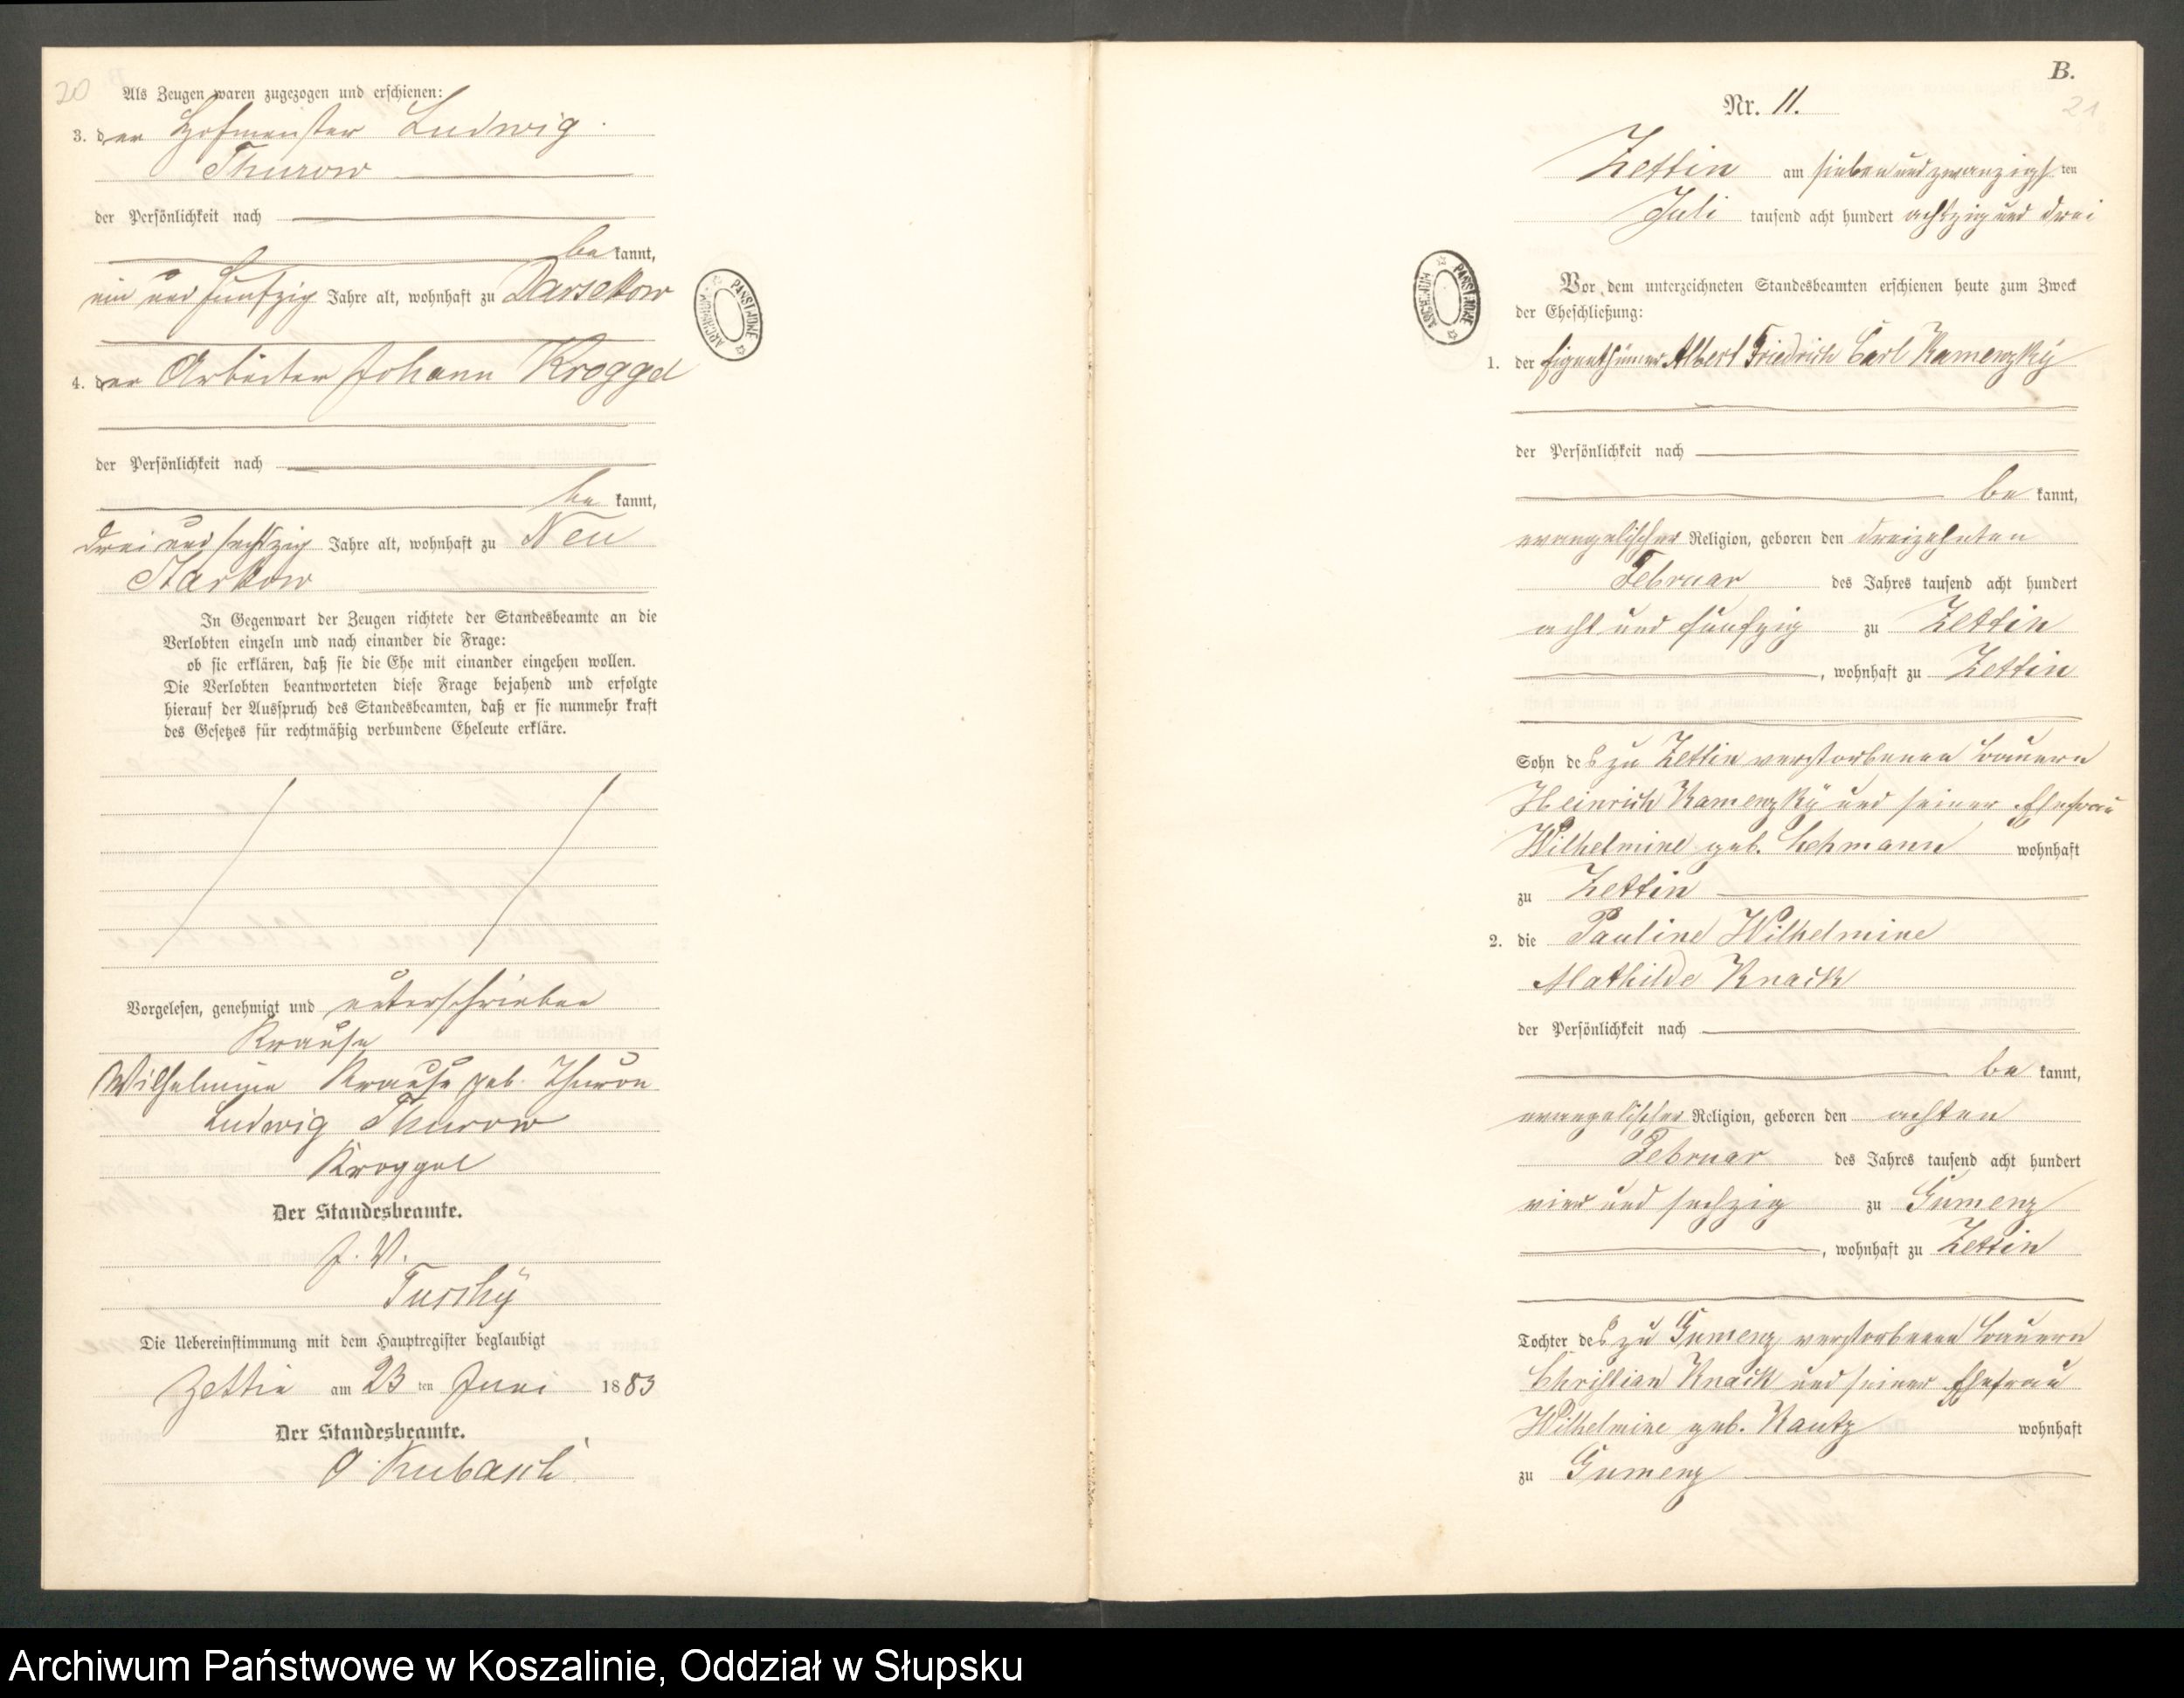 20
Als Zeugen waren zugezogen und erschienen:
3. der Hofmeister Ludwig
Thurow
der Persönlichkeit nach
be kannt,
ein und fünfzig Jahre alt, wohnhaft zu Darsekow
4. der Arbeiter Johann Kroggel
der Persönlichkeit nach
be kannt,
drei und sechszig Jahre alt, wohnhaft zu Neu
Starkow
In Gegenwart der Zeugen richtete der Standesbeamte an die
Verlobten einzeln und nach einander die Frage:
ob sie erklären, daß sie die Ehe mit einander eingehen wollen.
Die Verlobten beantworteten diese Frage bejahend und erfolgte
hierauf der Ausspruch des Standesbeamten, daß er sie nunmehr kraft
des Gesetzes für rechtmäßig verbundene Eheleute erkläre.
Vorgelesen, genehmigt und unterschrieben
Krause
Wilhelmine Krause geb. Thurow
Ludwig Thurow
Kroggel
Der Standesbeamte.
J. V.
Die Uebereinstimmung mit dem Hauptregister beglaubigt
Zettin am 23 ten Juni 1883
Der Standesbeamte.
Kubasch
B.
21
Nr. 11.
Zettin am sieben und zwanzigsten
Juli tausend acht hundert achtzig und drei
Vor dem unterzeichneten Standesbeamten erschienen heute zum Zweck
der Eheschließung:
1. der Eigenthümer Albert Friedrich Carl Kamenzky
der Persönlichkeit nach
be kannt,
evangelischer Religion, geboren den dreizehnten
Februar des Jahres tausend acht hundert
acht und fünfzig zu Zettin
, wohnhaft zu Zettin
Sohn des zu Zettin verstorbenen Bauern
Heinrich Kamenzky und seiner Ehefrau
Wilhelmine geb. Lehmann wohnhaft
zu Zettin
2. die Pauline Wilhelmine
Mathilde Knack
der Persönlichkeit nach
be kannt,
evangelischer Religion, geboren den achten
Februar des Jahres tausend acht hundert
vier und sechzig zu Gumenz
, wohnhaft zu Zettin
Tochter des zu Gumenz verstorbenen Bauern
Christian Knack und seiner Ehefrau
Wilhelmine geb. Kautz wohnhaft
zu Gumenz
ARCHIWUM PAŃSTWOWE
ARCHIWUM PAŃSTWOWE
Archiwum Państwowe w Koszalinie, Oddział w Słupsku